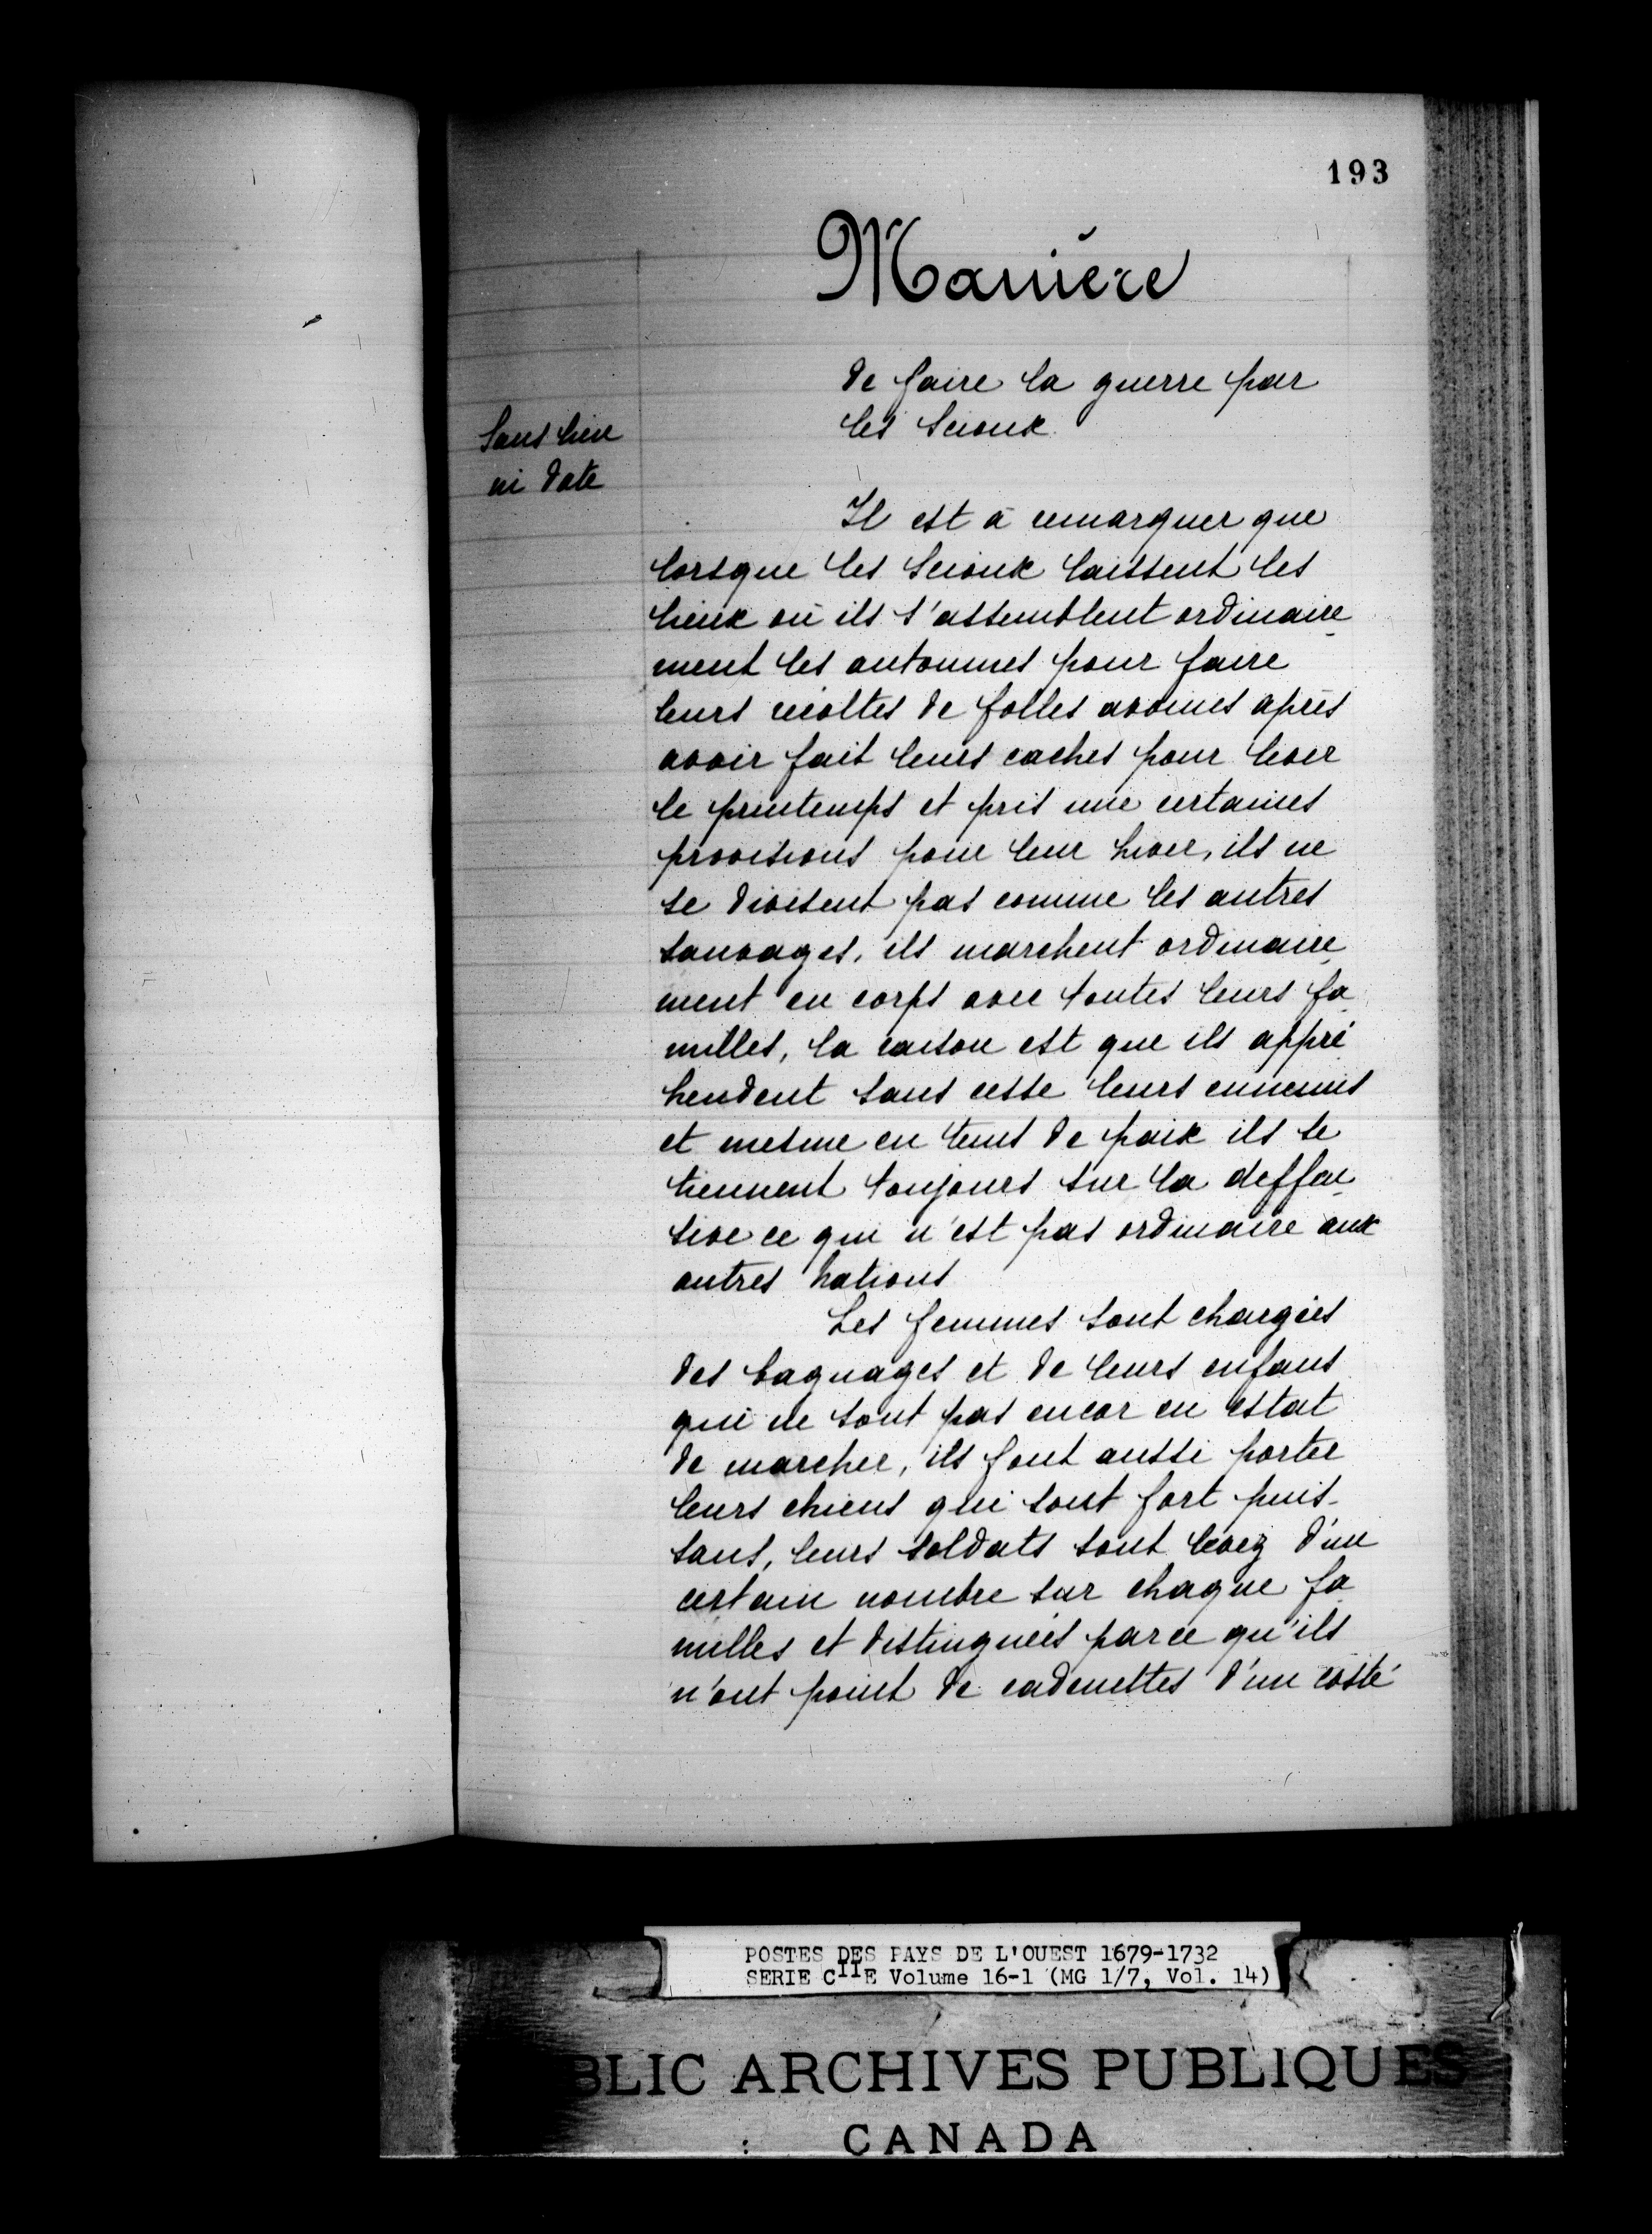 193
Manière
de faire la guerre par
les Scioux
Sans lieu
ni date
Il est à remarquer que
lorsque les Scioux laissent les
lieux où ils s'assemblent ordinaire
ment les automnes pour faire
leurs récoltes de folles avoines après
avoir fait leurs caches pour lever
le printemps et pris une certaines
provisions pour leur hiver, ils ne
se divisent pas comme les autres
sauvages, ils marchent ordinaire
ment en corps avec toutes leurs fa
milles, la raison est que ils appré
hendent sans cesse leurs ennemis
et mesme en tems de paix ils se
tiennent toujours sur la deffen
sive ce qui n'est pas ordinaire aux
autres nations
Les femmes sont chargées
des bagnages et de leurs enfans
qui ne sont pas encor en estat
de marcher, ils font aussi porter
leurs chiens qui sont fort puis-
sans, leurs soldats sont levez d'un
certain nombre sur chaque fa
milles et distinguées parce qu'ils
n'ont point de cadenettes d'un costé
POSTES DES PAYS DE L'OUEST 1679-1732
SERIE CIIE Volume 16-1 (MG 1/7, Vol. 14)
BLIC ARCHIVES PUBLIQUES
CANADA